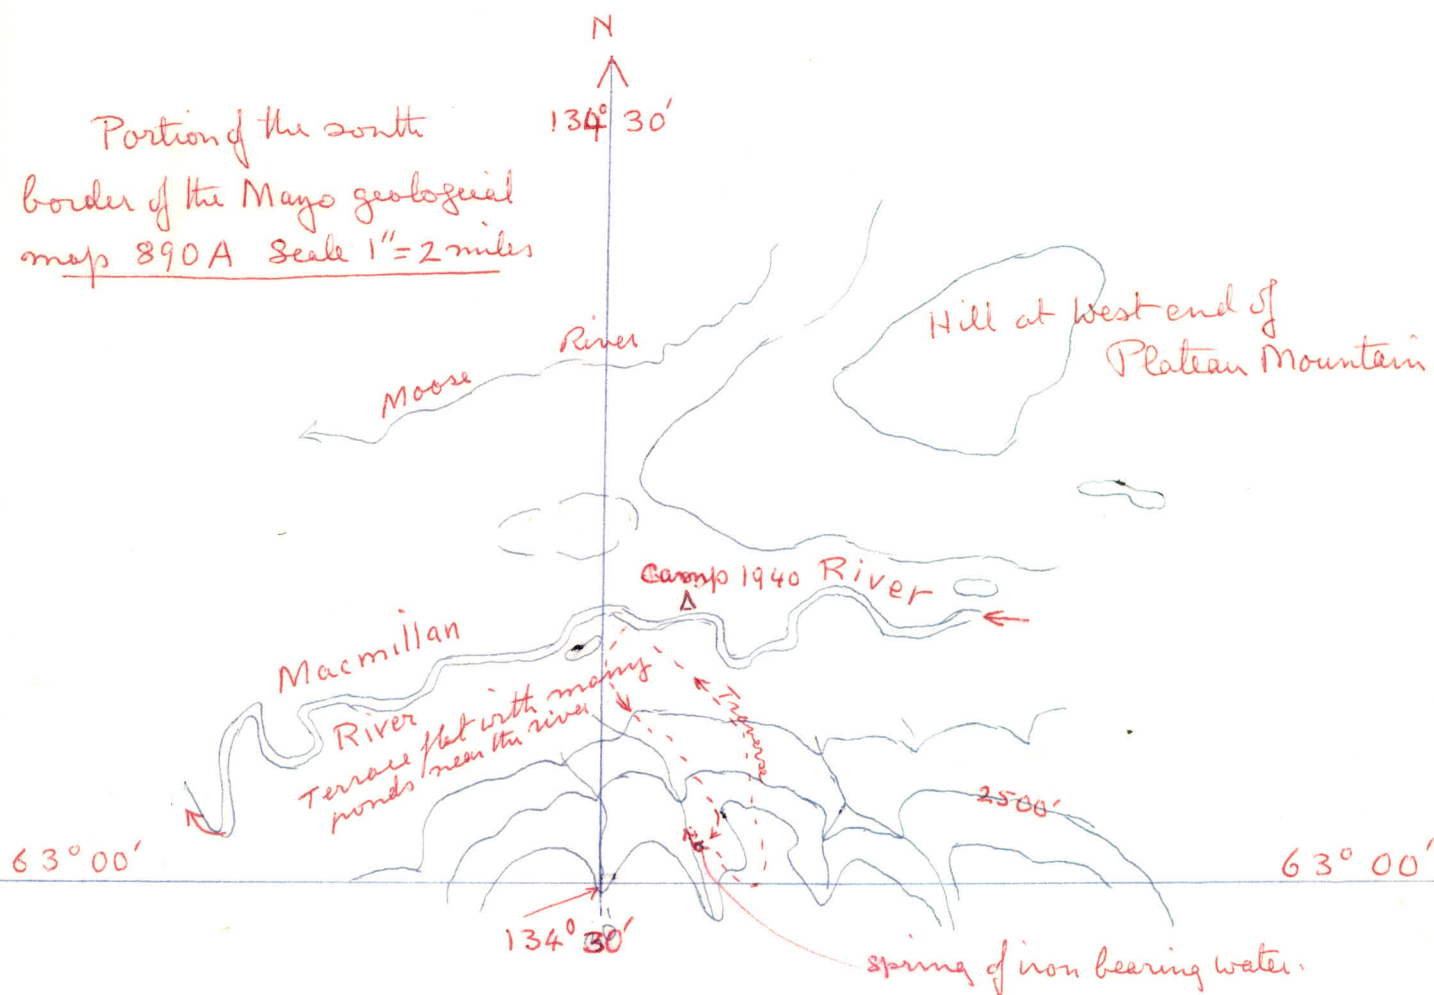 N
134° 30'
Portion of the south
border of the Mayo geological
map 890A Scale 1"=2 miles
Hill at West end of
Plateau Mountain
Moose River
Camp 1940
River
Macmillan
River
Terrace flat with many
ponds near the river
Traverse
2500'
63° 00'
63° 00'
134° 30'
spring of iron bearing water.